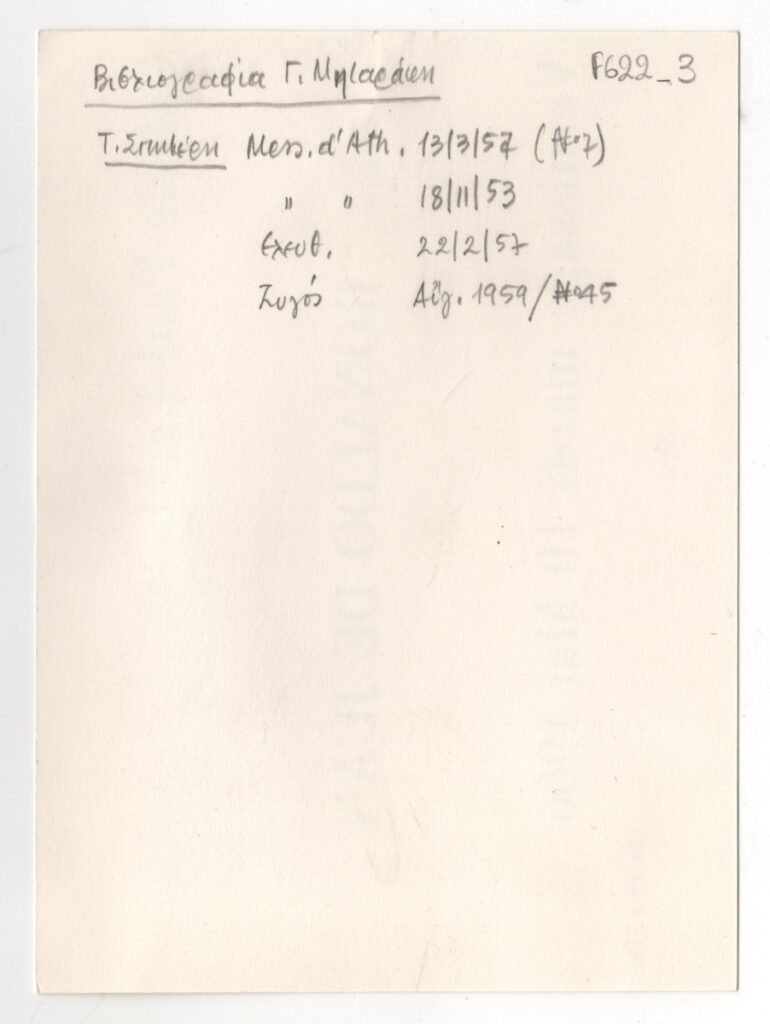 Βιβλιογραφία Γ. Μηταράκη F622_3
Τ. Σπητέρη Mess. d'Ath. 13/3/57 (№7)
" " 18/11/53
Ελευθ. 22/2/57
Ζυγός Αύγ. 1959/№45